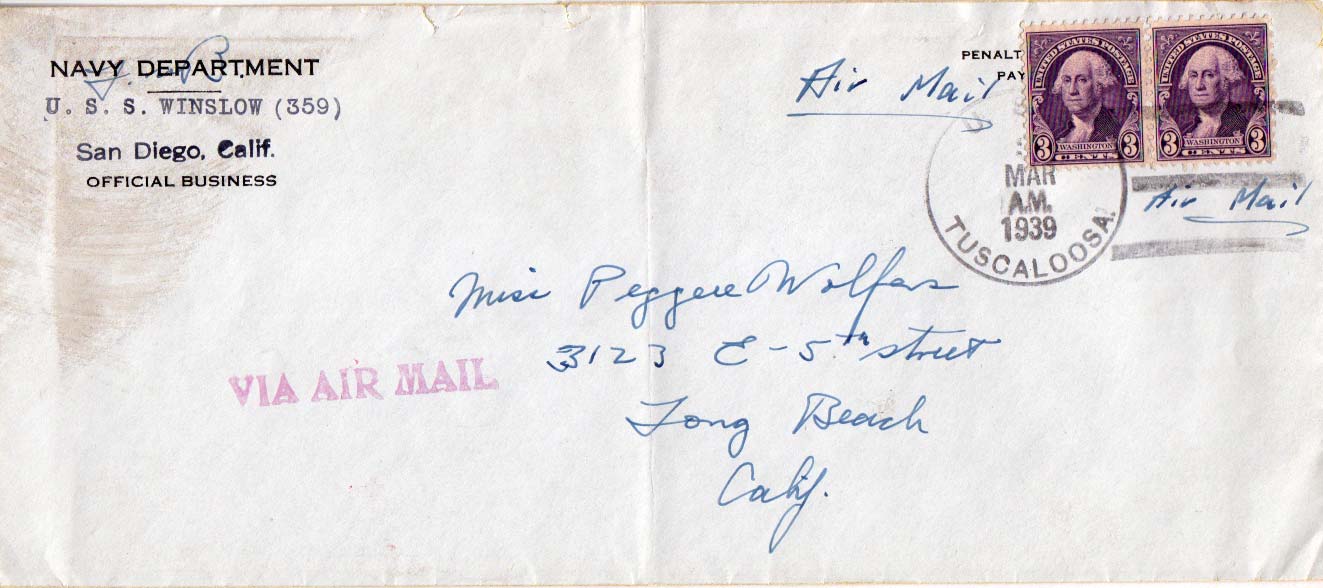 NAVY DEPARTMENT
U. S. S. WINSLOW (359)
San Diego, Calif.
OFFICIAL BUSINESS
PENALT
PAY
Air Mail
UNITED STATES POSTAGE
3 WASHINGTON 3
CENTS
UNITED STATES POSTAGE
3 WASHINGTON 3
CENTS
MAR
A.M.
1939
TUSCALOOSA.
Air Mail
Miss Peggere Wolfers
3123 E-5th street
Long Beach
Calif.
VIA AIR MAIL